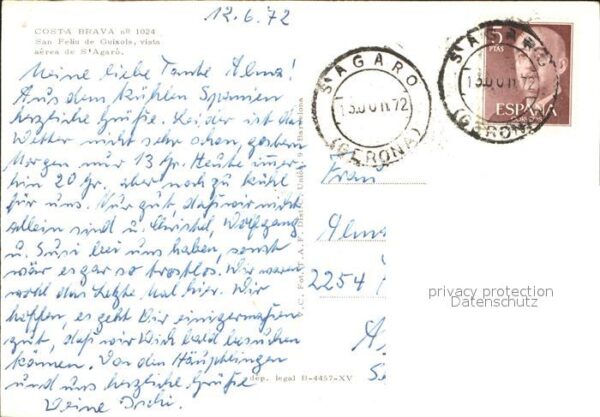 12.6.72
COSTA BRAVA nº 1024
San Feliu de Guixols, vista
aérea de S'Agaró.
Meine liebe Tante Alma!
Aus dem kühlen Spanien
herzliche Grüße. Leider ist das
Wetter nicht sehr schön, gestern
Morgen nur 13 Gr. Heute immer-
hin 20 Gr. aber noch zu kühl
für uns. Nur gut, daß wir nicht
allein sind u. Christel, Wolfgang
u. Susi bei uns haben, sonst
wär es gar so trostlos. Wir waren
wohl das letzte Mal hier. Wir
hoffen, es geht Dir einigermaßen
gut, daß wir Dich bald besuchen
können. Von den Häuptlingen
und uns herzliche Grüße
Deine
dep. legal B-4457-XV
Barcelona
S'AGARO
13 JUN. 72
(GERONA)
5
PTAS
ESPAÑA
S'AGARO
13 JUN. 72
(GERONA)
Frau
Alma
2254
privacy protection
Datenschutz